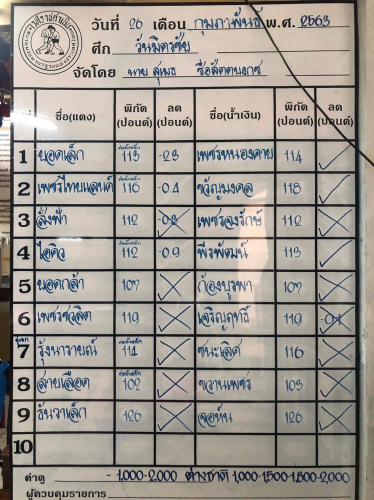 วันที่ 26 เดือน กุมภาพันธ์ พ.ศ. 2563
ศึก วันมิตรชัย
จัดโดย นาย สุเมธ
ชื่อ(แดง) พิกัด (ปอนด์) ลด (ปอนด์) ชื่อ(น้ำเงิน) พิกัด (ปอนด์) ลด (ปอนด์)
1 ยอดเล็ก 113 -2.3 เพชรหนองคาย 114
2 เพชรไทยแลนด์ 116 -0.4 ขวัญมงคล 118
3 สั่งฟ้า 112 เพชรจงรักษ์ 112
4 ไอคิว 112 -0.9 พีรพัฒน์ 113
5 ยอดกล้า 107 ก้องบูรพา 107
6 เพชรชวลิต 119 เจริญฤทธิ์ 119
7 รุ้งนารายณ์ 114 ชนะเลิศ 116
8 สายเลือด 102 ขวานเพชร 103
9 ธันวาเล็ก 126 จอห์น 126
10
ค่าดู - 1,000-2,000 ต่างชาติ 1,000-1,500-1,800-2,000
ผู้ควบคุมรายการ